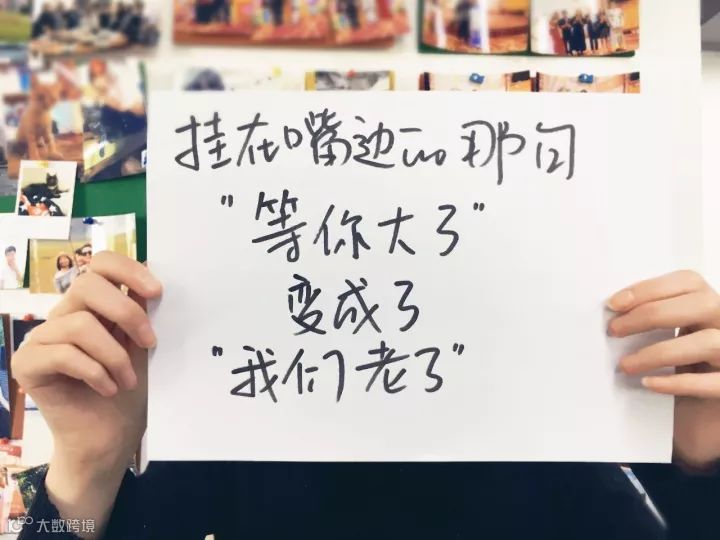 挂在嘴边的那句
"等你大了"
变成了
"我们老了"
大数跨境